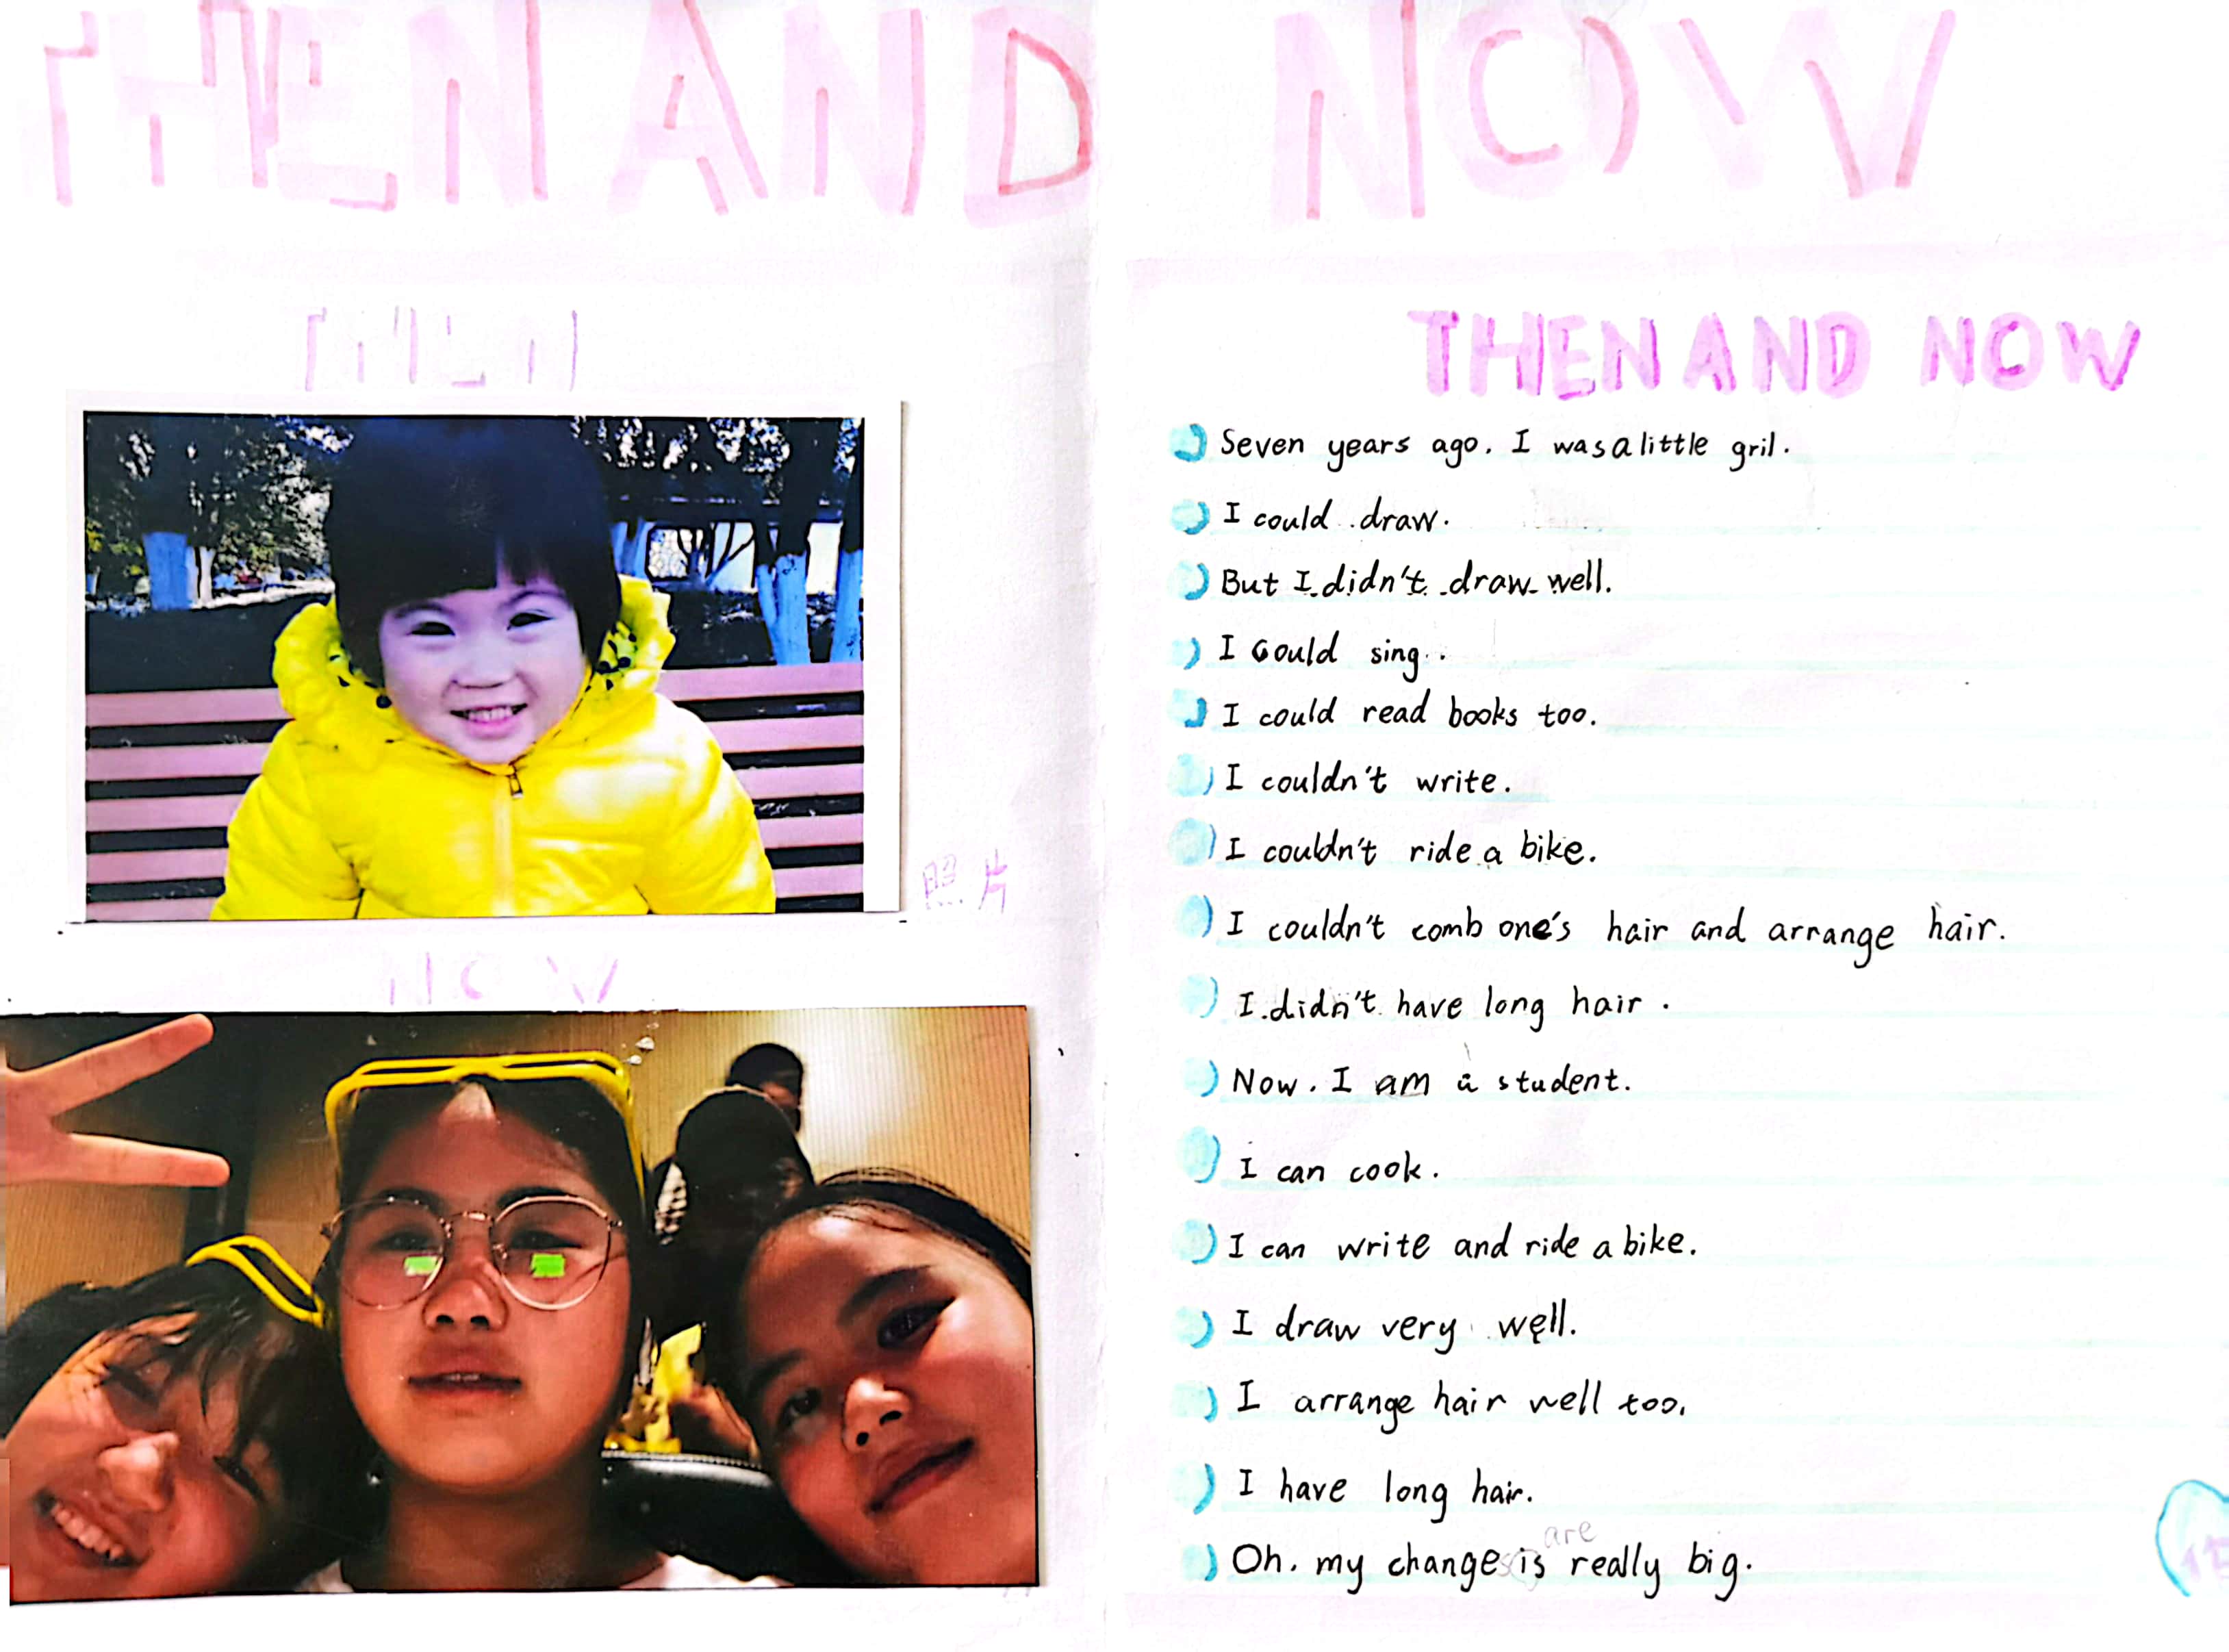 THEN AND NOW
THEN
照片
NOW
THEN AND NOW
Seven years ago. I was a little gril.
I could draw.
But I didn't draw well.
I could sing.
I could read books too.
I couldn't write.
I couldn't ride a bike.
I couldn't comb one's hair and arrange hair.
I didn't have long hair.
Now. I am a student.
I can cook.
I can write and ride a bike.
I draw very well.
I arrange hair well too.
I have long hair.
are
Oh. my changes is really big.